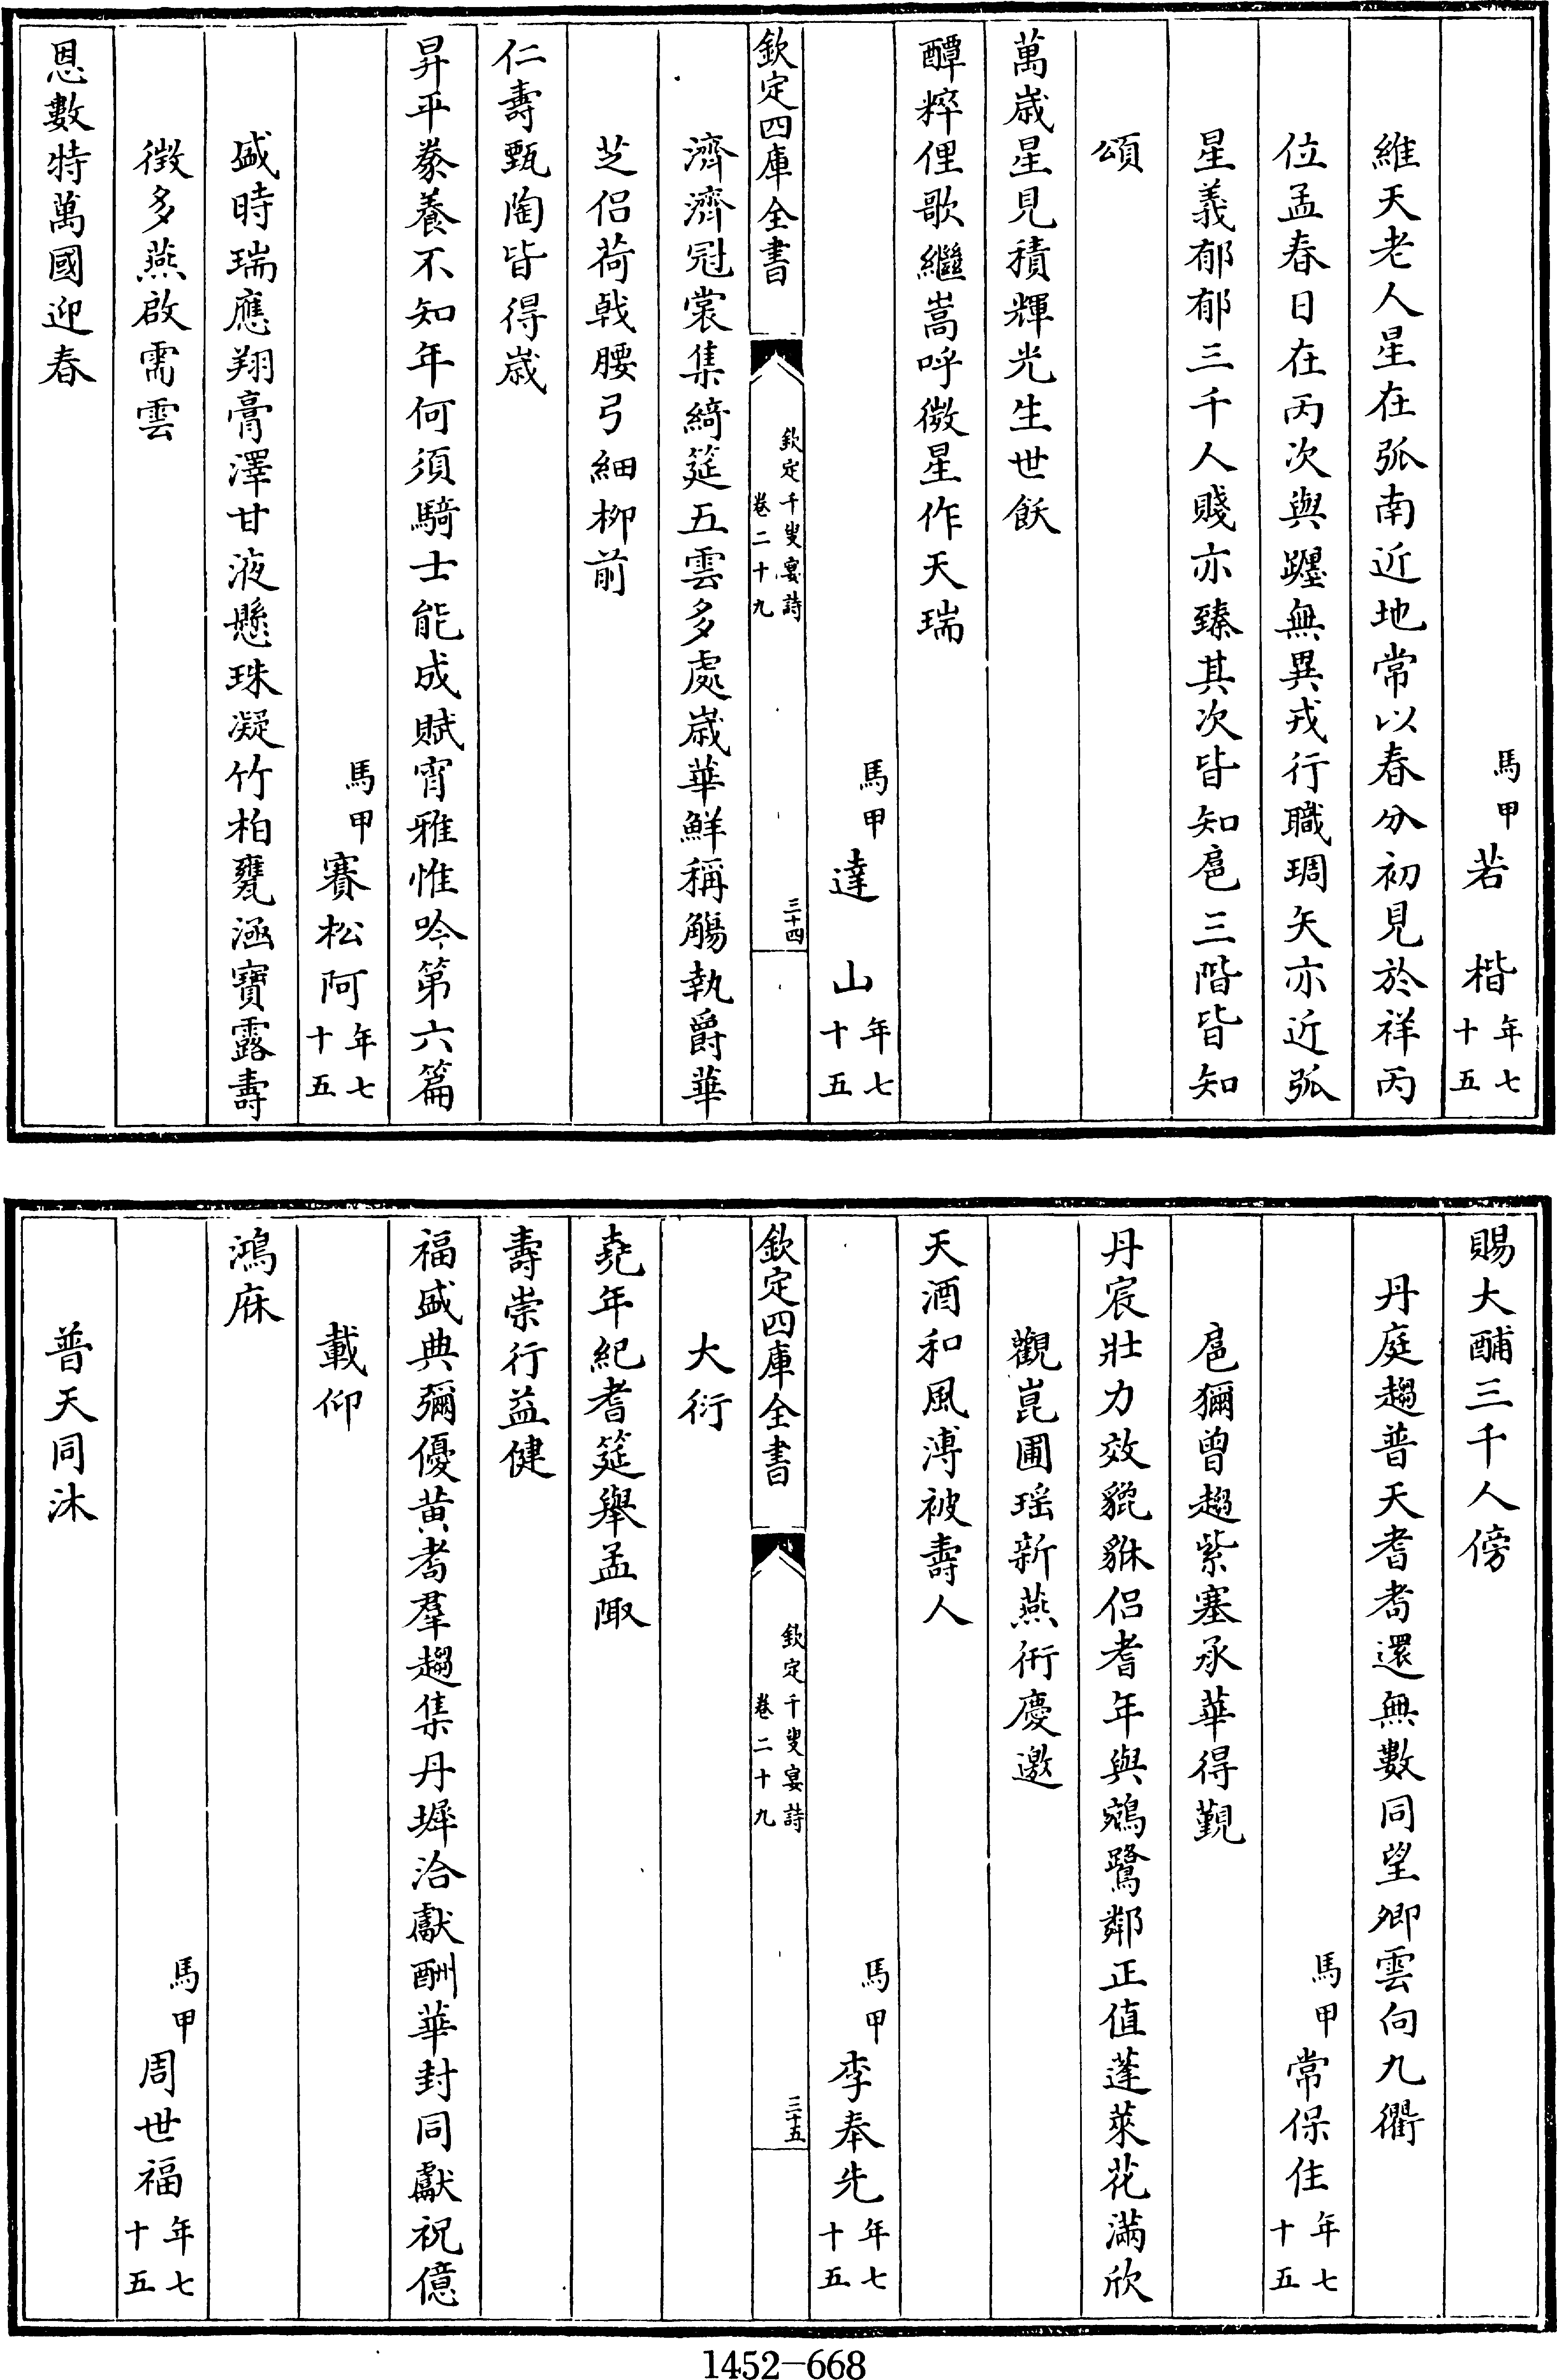 馬甲若 楷年七十五
維天老人星在弧南近地常以春分初見於祥丙
位孟春日在丙次與躔無異戎行職琱矢亦近弧
星義郁郁三千人賤亦臻其次皆知扈三階皆知
頌
萬歳星見積輝光生世飫
醰粹俚歌繼嵩呼微星作天瑞
馬甲達 山年七十五
欽定四庫全書
欽定千叟宴詩
卷二十九
三十四
濟濟冠裳集綺筵五雲多處歳華鮮稱觴執爵華
芝侣荷㦸腰弓細栁前
仁壽甄陶皆得歳
昇平豢養不知年何須騎士能成賦宵雅惟吟第六篇
馬甲賽松阿年七十五
盛時瑞應翔膏澤甘液懸珠凝竹柏甕涵寳露壽
徴多燕啟需雲
恩數特萬國迎春
賜大酺三千人傍
丹庭趨普天耆耇還無數同望卿雲向九衢
馬甲常保住年七十五
扈獮曾趨紫塞承華得覲
丹宸壯力效貔貅侣耆年與鵷鷺鄰正值蓬萊花滿欣
觀崑圃瑶新燕衎慶邀
天酒和風溥被壽人
馬甲李奉先年七十五
欽定四庫全書
欽定千叟宴詩
卷二十九
三十五
大衍
堯年紀耆筵舉孟陬
壽崇行益健
福盛典彌優黄耇羣趨集丹墀洽獻酬華封同獻祝億
載仰
鴻庥
馬甲周世福年七十五
普天同沐
1452—668